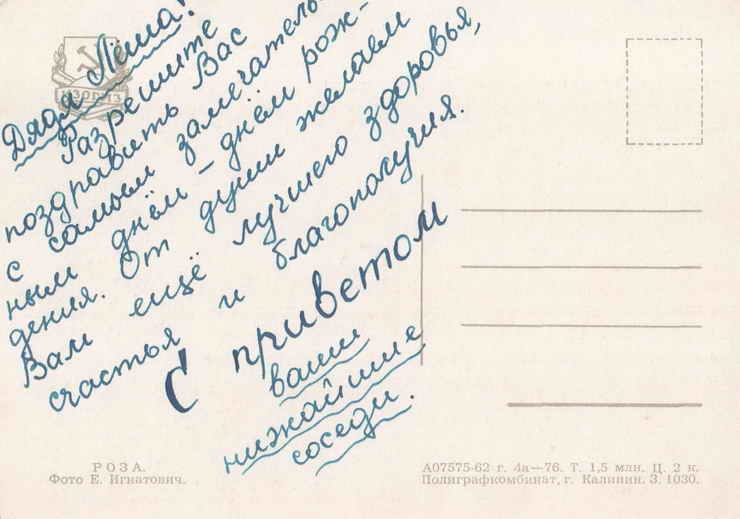 Дядя Лёша!
Разрешите
поздравить Вас
с самым замечатель-
ным днём – днём рож-
дения. От души желаем
Вам ещё лучшего здоровья,
счастья и благополучия.
С приветом
ваши
нижайшие
соседи.
ИЗОГИЗ
РОЗА.
Фото Е. Игнатович.
А07575-62 г. 4а—76. Т. 1,5 млн. Ц. 2 к.
Полиграфкомбинат, г. Калинин. З. 1030.